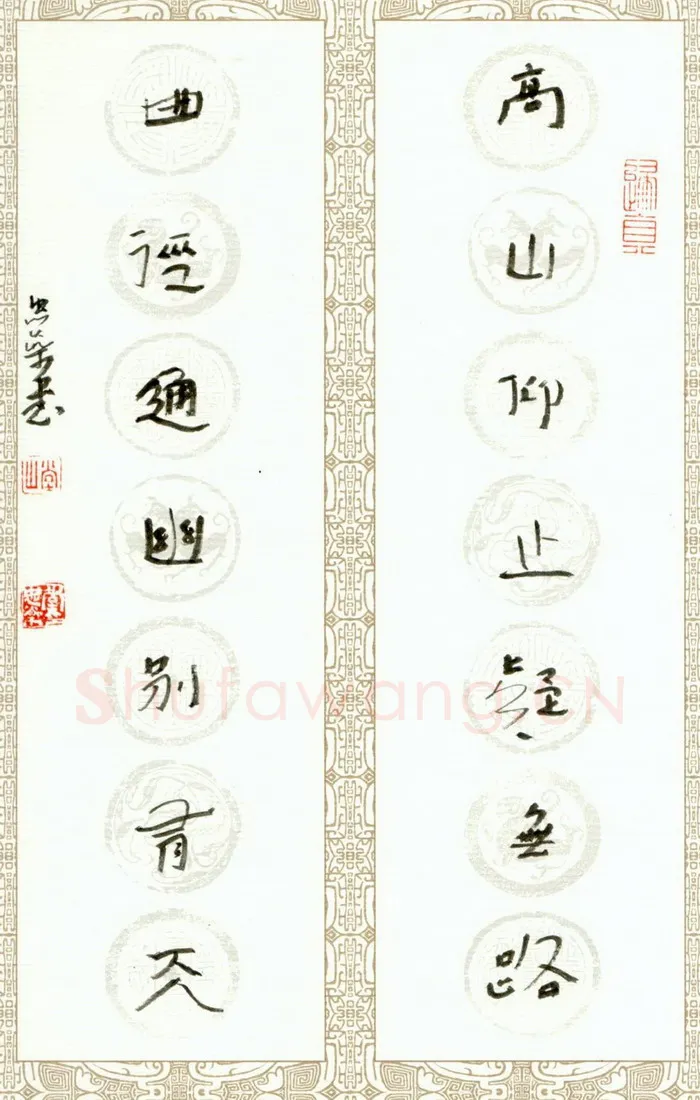 高山仰止疑無路
曲徑通幽別有天
書
Shufawang.CN